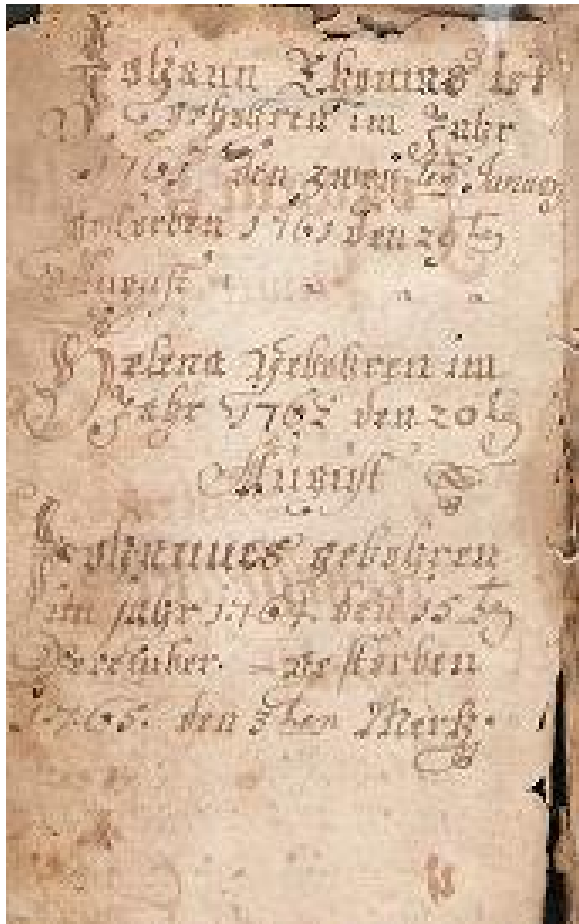 Johann Thomas ist
Gebohren im Jahr
1761 den zweyten
gestorben 1761 den 29ten
August
Helena Gebohren im
Jahr 1762 den 20ten
August
Johannes gebohren
im jahr 1764 den 15ten
December. gestorben
1765. den 3ten Mertz.